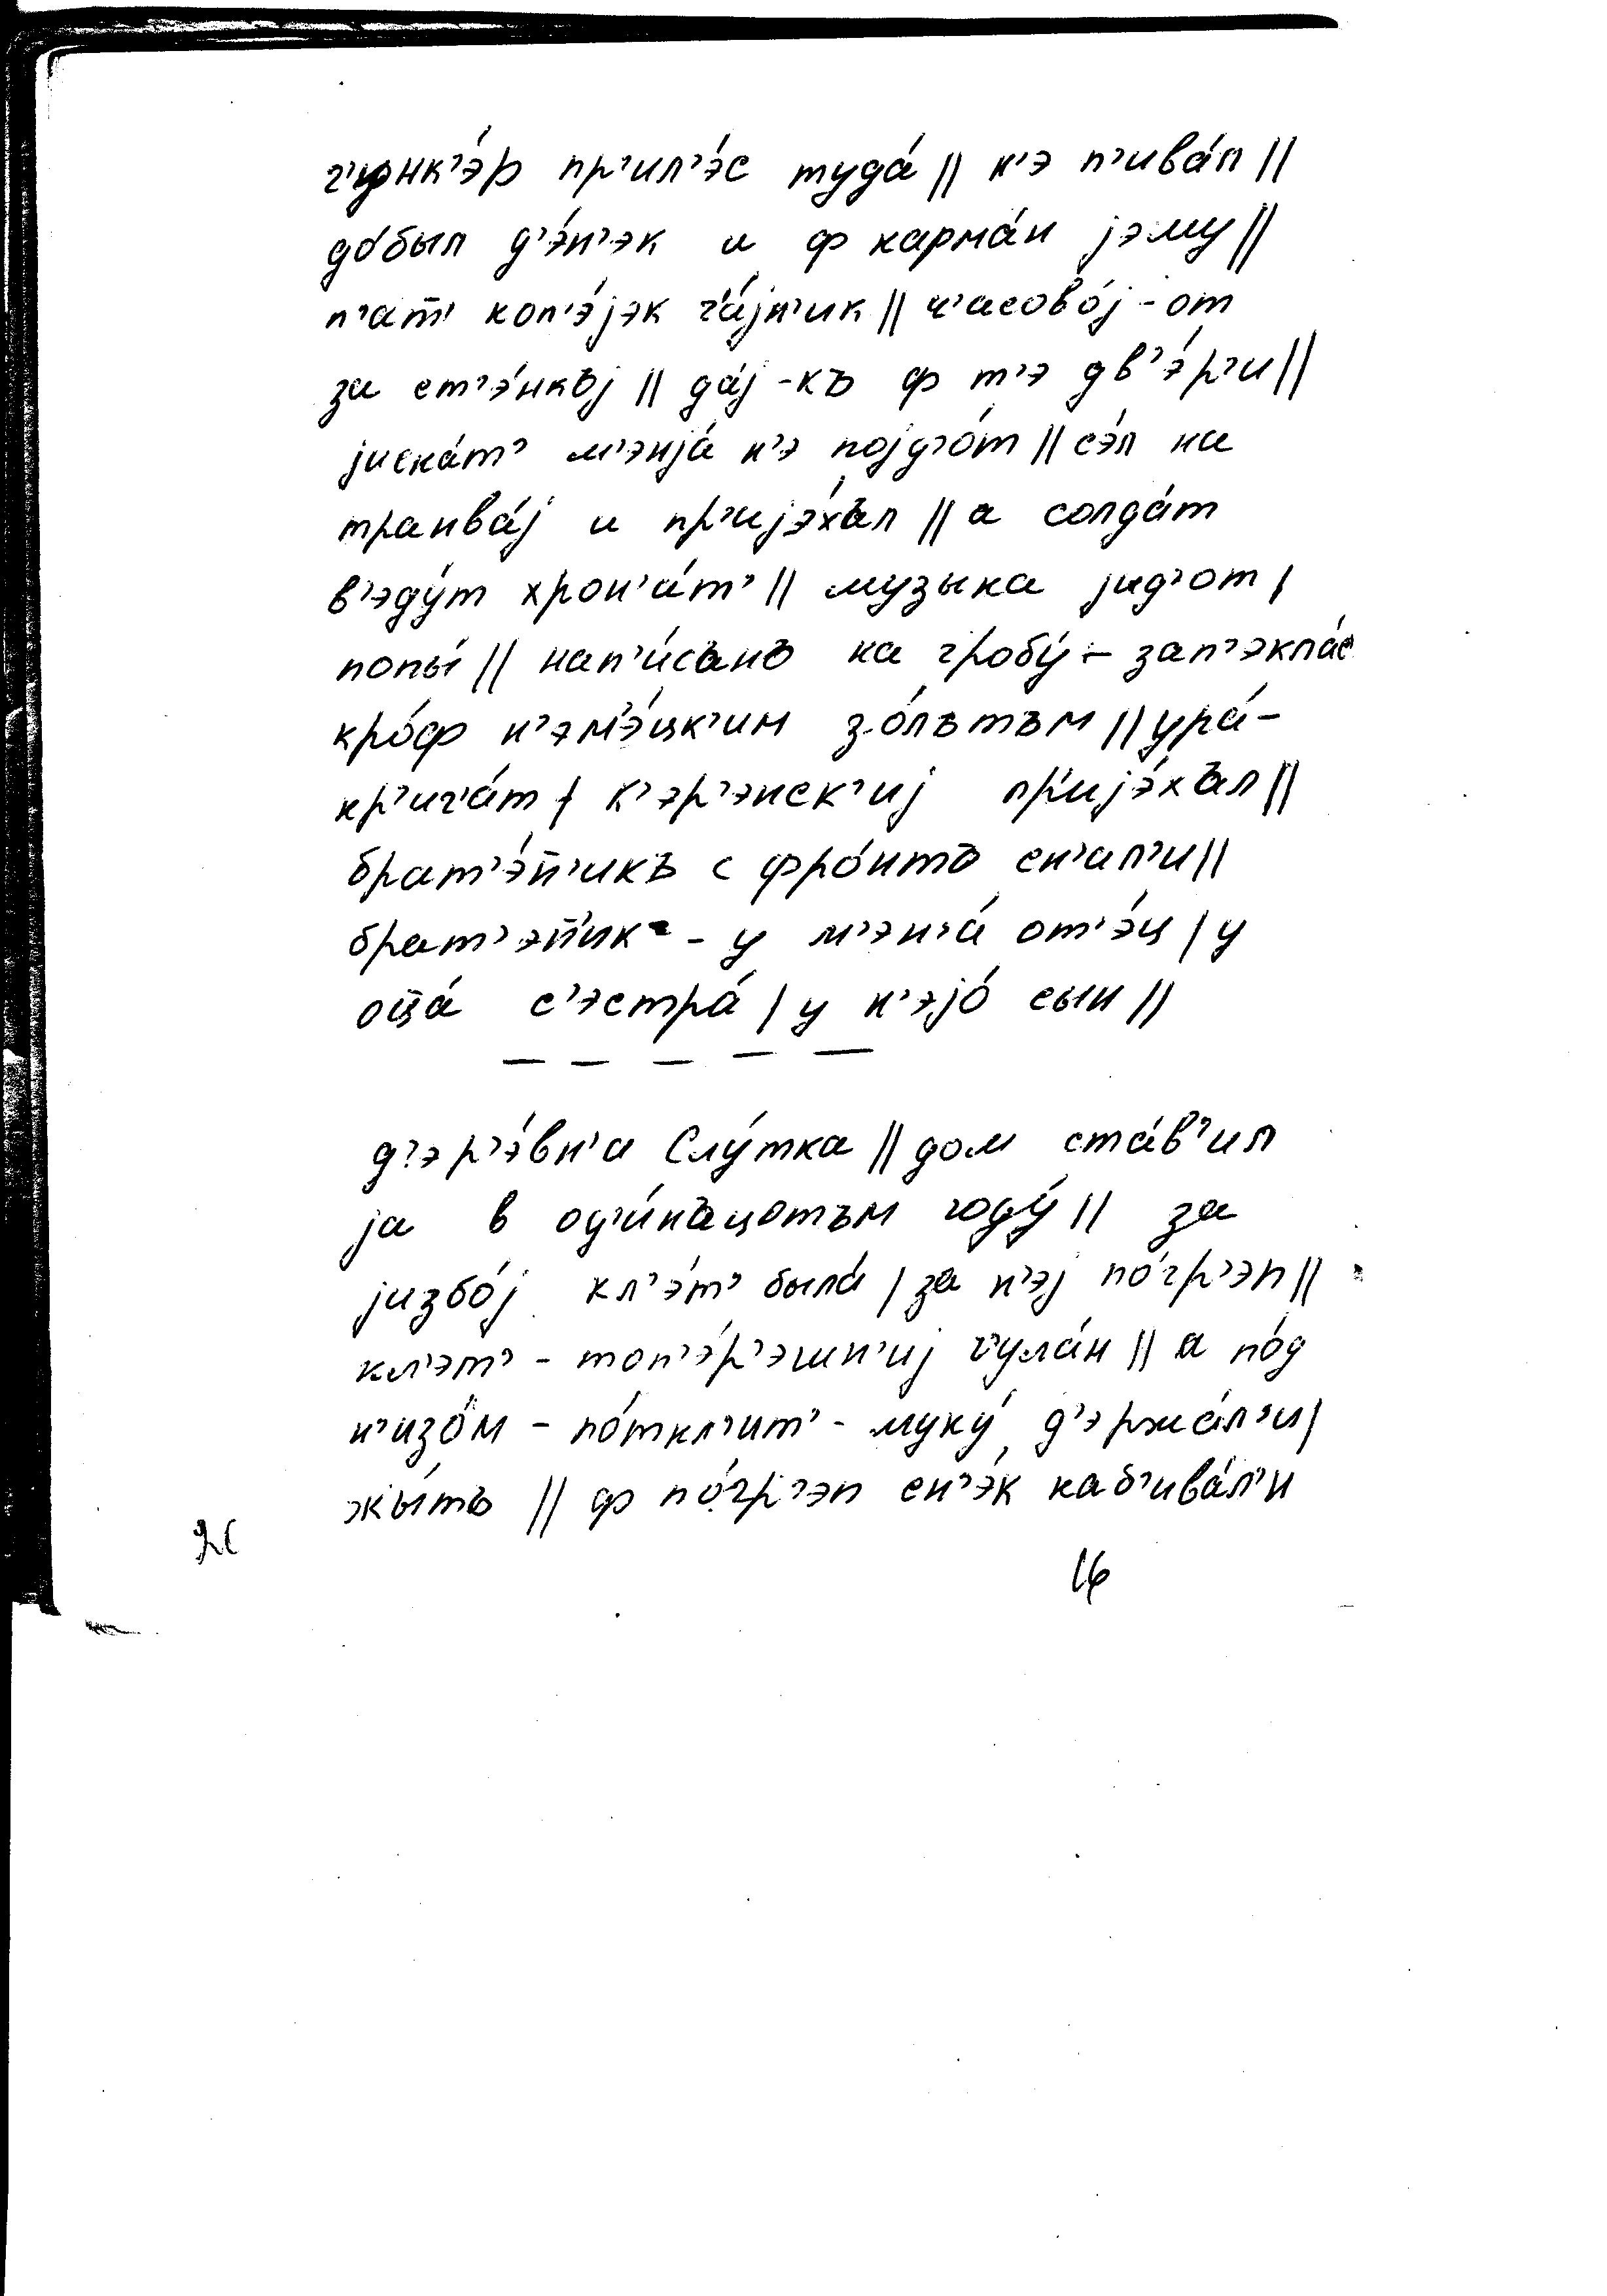 г'юнк'э́р пр'ил'э́с туда́ || н'э п'ива́л ||
до́был д'э́н'эк и ф карма́н јэму ||
п'ат' коп'э́јэк ч'а́јн'ик || ч'асово́ј - от
за ст'э́нкъј || да́ј - къ ф т'э дв'э́р'и ||
јиска́т' м'энја́ н'э појд'о́т || сэ́л на
транва́ј и пр'ијэ́хъл || а солда́т
в'эду́т хрон'а́т' || музыка јид'от |
попы́ || нап'и́сънъ на гробу́ - зап'экла́с
кро́ф н'эм'э́цк'им зо́лътъм || ура́ -
кр'ич'а́т | к'эр'энск'иј пр'ијэ́хъл ||
брат'э́н'икъ с фро́нтъ сн'ал'и ||
брат'эн'ик - у м'эн'а́ от'э́ц | у
оца́ с'эстра́ | у н'эјо́ сын ||
— — — — —
д'эр'э́вн'а Слу́тка || дом ста́в'ил
ја в од'и́нъцотъм году́ || за
јизбо́ј кл'э́т' была́ | за н'эј по́гр'эп ||
кл'эт' - топ'э́р'эшн'иј ч'ула́н || а по́д
н'изо́м - по́ткл'ит' - муку́ д'эржа́л'и |
жы́тъ || ф по́гр'эп сн'э́к наб'ива́л'и
16